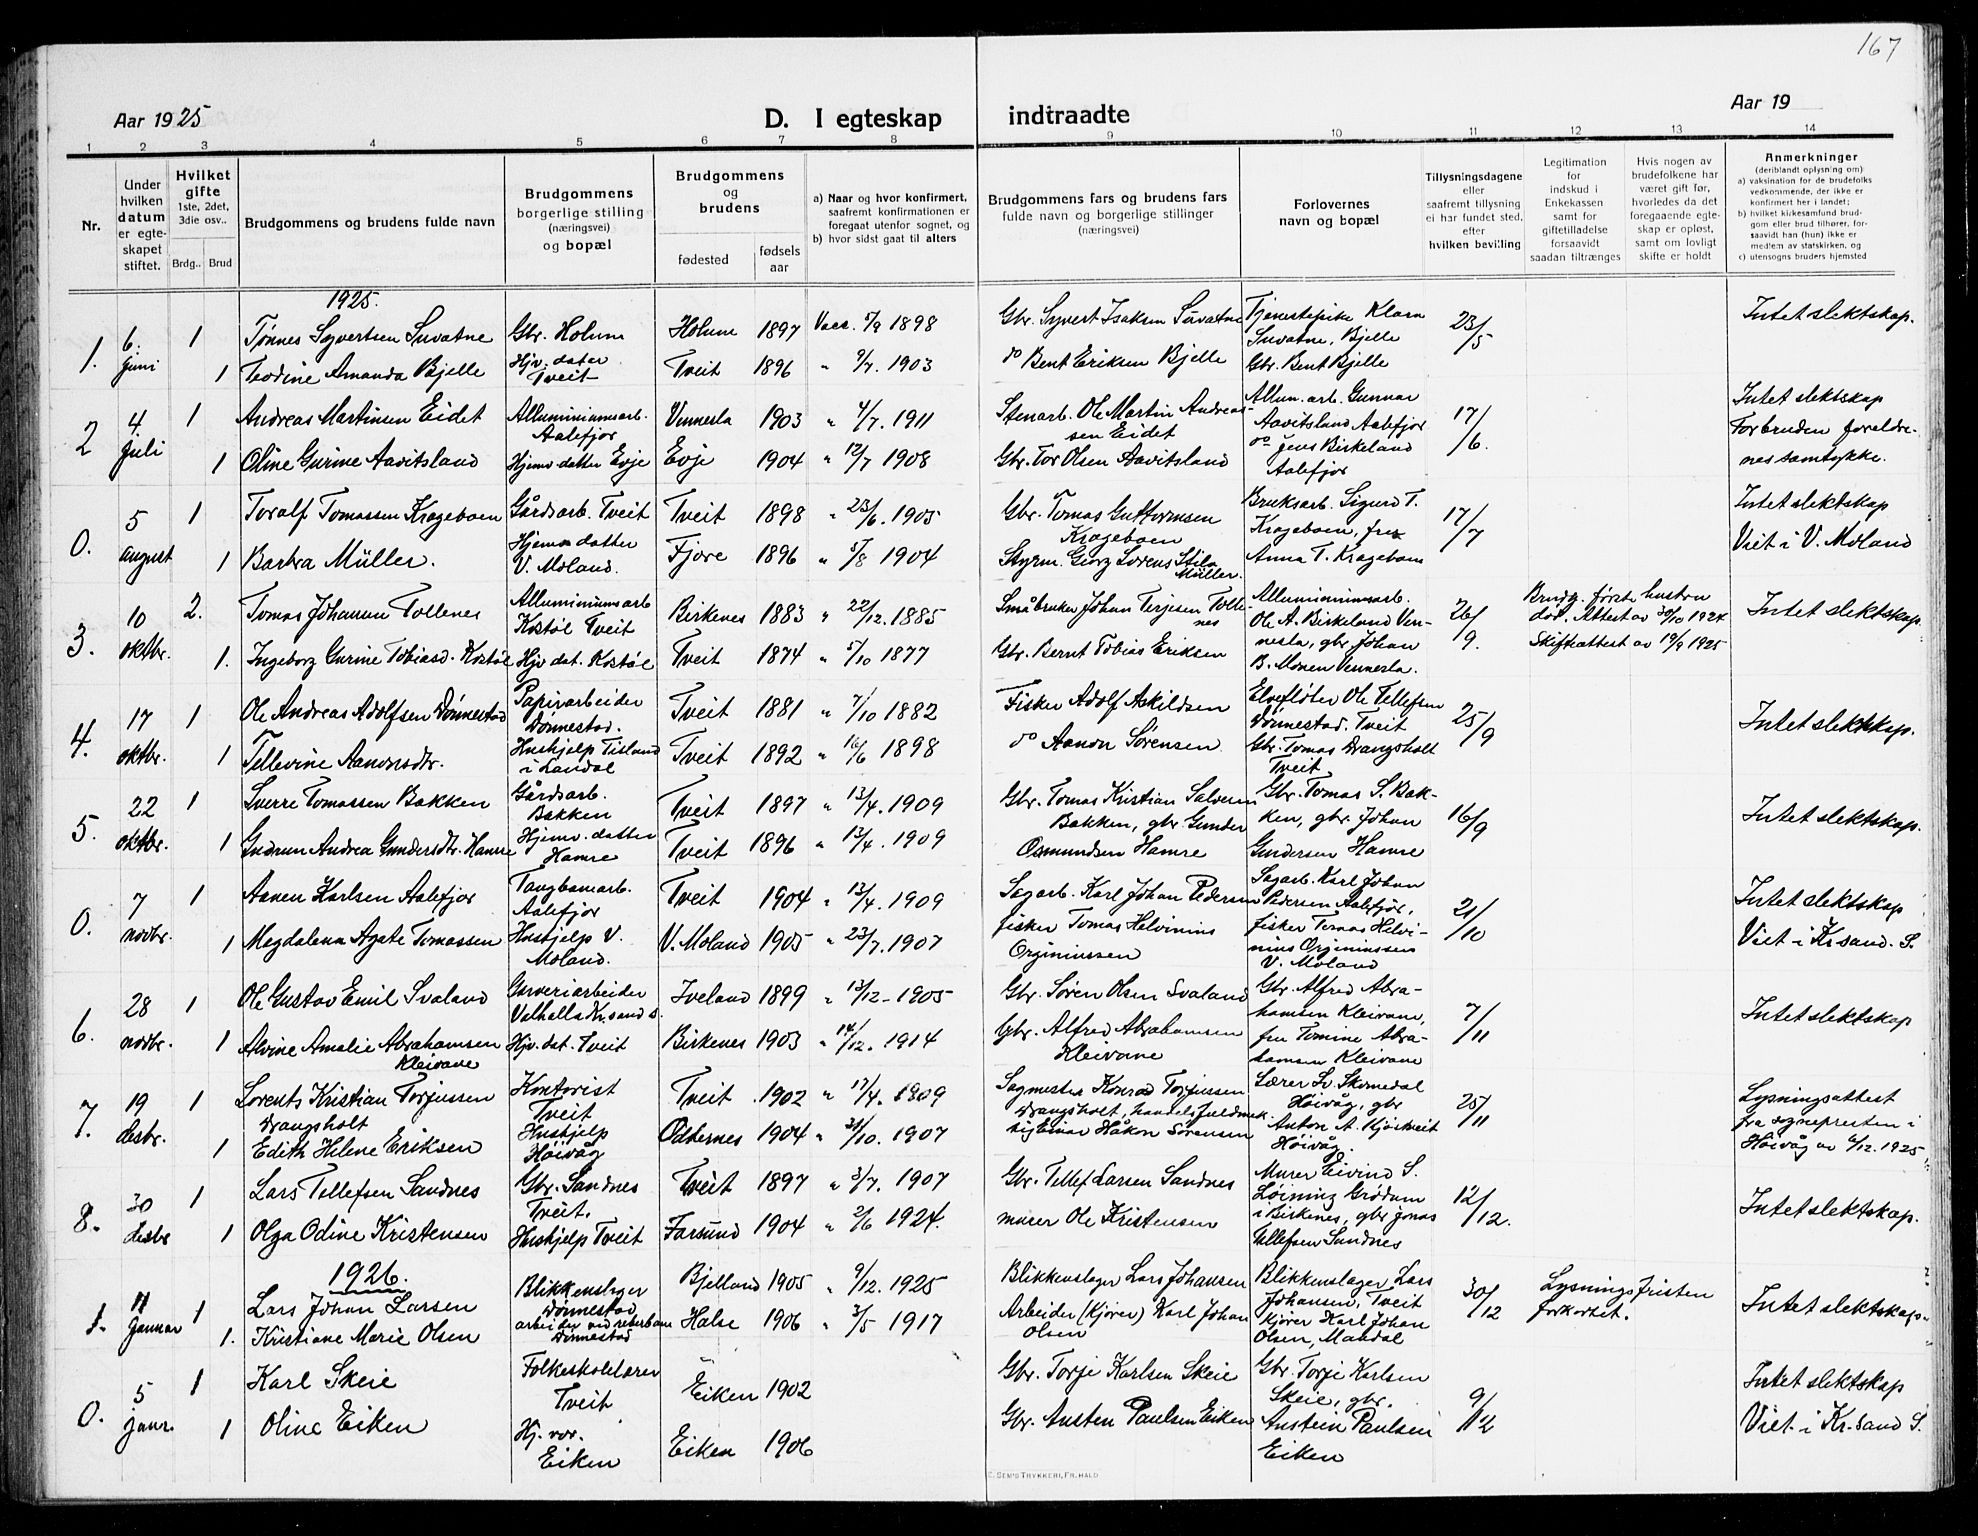 167
Aar 1925
D. I egteskap
indtraadte
Aar 19
1 2 3 4 5 6 7 8 9 10 11 12 13 14
Nr.
Under hvilken datum er egteskapet stiftet.
Hvilket gifte 1ste, 2det, 3die osv..
Brdg.. Brud
Brudgommens og brudens fulde navn
Brudgommens borgerlige stilling (næringsvei) og bopæl
Brudgommens og brudens
fødested
fødsels aar
a) Naar og hvor konfirmert, saafremt konfirmationen er foregaat utenfor sognet, og
b) hvor sidst gaat til alters
Brudgommens fars og brudens fars fulde navn og borgerlige stillinger (næringsvei)
Forlovernes navn og bopæl
Tillysningsdagene eller saafremt tillysning ei har fundet sted, efter hvilken bevilling
Legitimation for indskud i Enkekassen samt for giftetilladelse forsaavidt saadan tiltrænges
Hvis nogen av brudefolkene har været gift før, hvorledes da det foregaaende egteskap er opløst, samt om lovligt skifte er holdt
Anmerkninger (deriblandt oplysning om)
a) vaksination for de brudefolks vedkommende, der ikke er konfirmert her i landet;
b) hvilket kirkesamfund brudgom eller brud tilhører, forsaavidt han (hun) ikke er medlem av statskirken, og
c) utensogns bruders hjemsted
1925.
1. 6. juni 1 Tønnes Syvertsen Suvatne Gbr. Holum Holum 1897 Vacs. 5/9 1898 Gbr. Syvert Isaksen Suvatne Tjenestepike Klara Suvatne, Bjelle 23/5 Intet slektskap.
1 Teodine Amanda Bjelle Hjv. datter Tveit Tveit 1896 " 9/7. 1903 do Bent Eriksen Bjelle Gbr. Bent Bjelle
2 4 juli 1 Andreas Martinsen Eidet Alluminiumsarb. Aalefjær Vennesla 1903 " 4/7. 1911 Stenarb. Ole Martin Andreassen Eidet Allum. arb. Gunnar Aavitsland Aalefjær 17/6. Intet slektskap
1 Oline Gurine Aavitsland Hjemv. datter Evje Evje 1904 " 12/7 1908 Gbr. Tor Olsen Aavitsland do Jens Birkeland Aalefjær For bruden foreldrenes samtykke.
0. 5 august 1 Toralf Tomassen Krageboen Gårdsarb. Tveit Tveit 1898 " 23/6. 1905 Gbr. Tomas Guttormsen Krageboen Bruksarb. Sigurd T. Krageboen, frk 17/7 Intet slektskap
1 Barbra Müller. Hjemv. datter V. Moland. Fjære 1896 " 5/8 1904 Styrm. Georg Lorens Stila Müller. Anna T. Krageboen Viet i V. Moland
3. 10 oktbr. 2. Tomas Johansen Tollenes Alluminiumsarb Kostøl Tveit Birkenes 1883 " 22/12. 1885 Småbruker Johan Terjesen Tollenes Alluminiumsarb. Ole A. Birkeland Vennesla, gbr Johan B. Moen Vennesla. 26/9. Brudg. første hustru død. Attest av 30/10 1924. Skifteattest av 19/9 1925 Intet slektskap.
1. Ingeborg Gurine Tobiasd. Kostøl Hjv. dat. Kostøl Tveit 1874 " 5/10 1877 Gbr. Bernt Tobias Eriksen
4. 17 oktbr. 1 Ole Andreas Adolfsen Dønnestad Papirarbeider Dønnestad. Tveit 1881 " 7/10 1882 Fisker Adolf Askildsen Elvefløter Ole Tellefsen Dønnestad. Tveit 25/9 Intet slektskap.
1 Tellevine Aanonsdtr. Hushjelp Tisland i Landal Tveit 1892 " 16/6 1898 do Aanon Sørensen Gbr. Tomas Drangsholt Tveit
5. 22 oktbr. 1 Sverre Tomassen Bakken Gårdsarb. Bakken Tveit 1897 " 13/4. 1909 Gbr. Tomas Kristian Salvesen Bakken, gbr Gunder Gbr. Tomas S. Bakken, gbr. Johan 16/9 Intet slektskap.
1 Gudrun Andrea Gundersdtr. Hamre Hjemv. datter Hamre Tveit 1896 " 13/4. 1909 Osmundsen Hamre Gundersen Hamre
0. 7 novbr. 1 Aanen Karlsen Aalefjær Taugbanearb. Aalefjær Tveit 1904 " 13/4. 1909 Sagarb. Karl Johan Pedersen Sagarb. Karl Johan Pedersen Aalefjær, 21/10 Intet slektskap
1 Magdalena Agate Tomassen Hushjelp V. Moland. V. Moland 1905 " 23/7. 1907 fisker Tomas Helvinius Orginiussen fisker Tomas Helvinius Orginiussen V. Moland Viet i Kr.sand. S.
6. 28 novbr. 1 Ole Gustav Emil Svaland Garveriarbeider Valhalla Kr.sand S. Iveland 1899 " 13/12 1905 Gbr. Søren Olsen Svaland Gbr. Alfred Abrahamsen Kleivane, 7/11 Intet slektskap
1 Alvine Amalie Abrahamsen Kleivane Hjv. dat. Tveit Birkenes 1903 " 14/12. 1914 Gbr. Alfred Abrahamsen Kleivane fru Tomine Abrahamsen Kleivane
7. 19 desbr. 1 Lorents Kristian Torjussen Drangsholt Kontorist Tveit Tveit 1902 " 17/4. 1909 Sagmester Konrad Torjussen Drangsholt, handelsfuldmektig Einar Håkon Sørensen Lærer Sv. Skomedal Høivåg, gbr Anton A. Kjøstveit Høivåg. 25/11 Lysningsattest fra sognepresten i Høivåg av 6/12. 1925
1 Edith Helene Eriksen Hushjelp Høivåg Oddernes 1904 " 31/10. 1907
8. 30 desbr 1 Lars Tellefsen Sandnes Gbr. Sandnes Tveit. Tveit 1897 " 3/7. 1907 Gbr. Tellef Larsen Sandnes Murer Eivind S. Løining Grødum i Birkenes, gbr Jonas Tellefsen Sandnes 12/12. Intet slektskap.
1 Olga Odine Kristensen Hushjelp Tveit Farsund 1904 " 2/6 1924. murer Ole Kristensen
1926.
1. 11 januar 1 Lars Johan Larsen Blikkenslager Dønnestad Bjelland 1905 " 9/12. 1925 Blikkenslager Lars Johansen Blikkenslager Lars Johansen, Tveit 30/12 Lysningsfristen forkortet. Intet slektskap.
1. Kristiane Marie Olsen arbeider ved reberbane Dønnestad Halse 1906 " 3/5 1917 Arbeider (Kjører) Karl Johan Olsen kjører Karl Johan Olsen, Mandal
0. 5 januar. 1 Karl Skeie Folkeskolelærer Tveit Eiken 1902 Gbr. Torje Karlsen Skeie Gbr. Torje Karlsen Skeie, gbr. 9/12 Intet slektskap
1 Oline Eiken Hj. vær. Eiken Eiken 1906 Gbr. Austen Paulsen Eiken Austein Paulsen Eiken Viet i Kr.sand S.
E. SEM'S TRYKKERI, FR.HALD